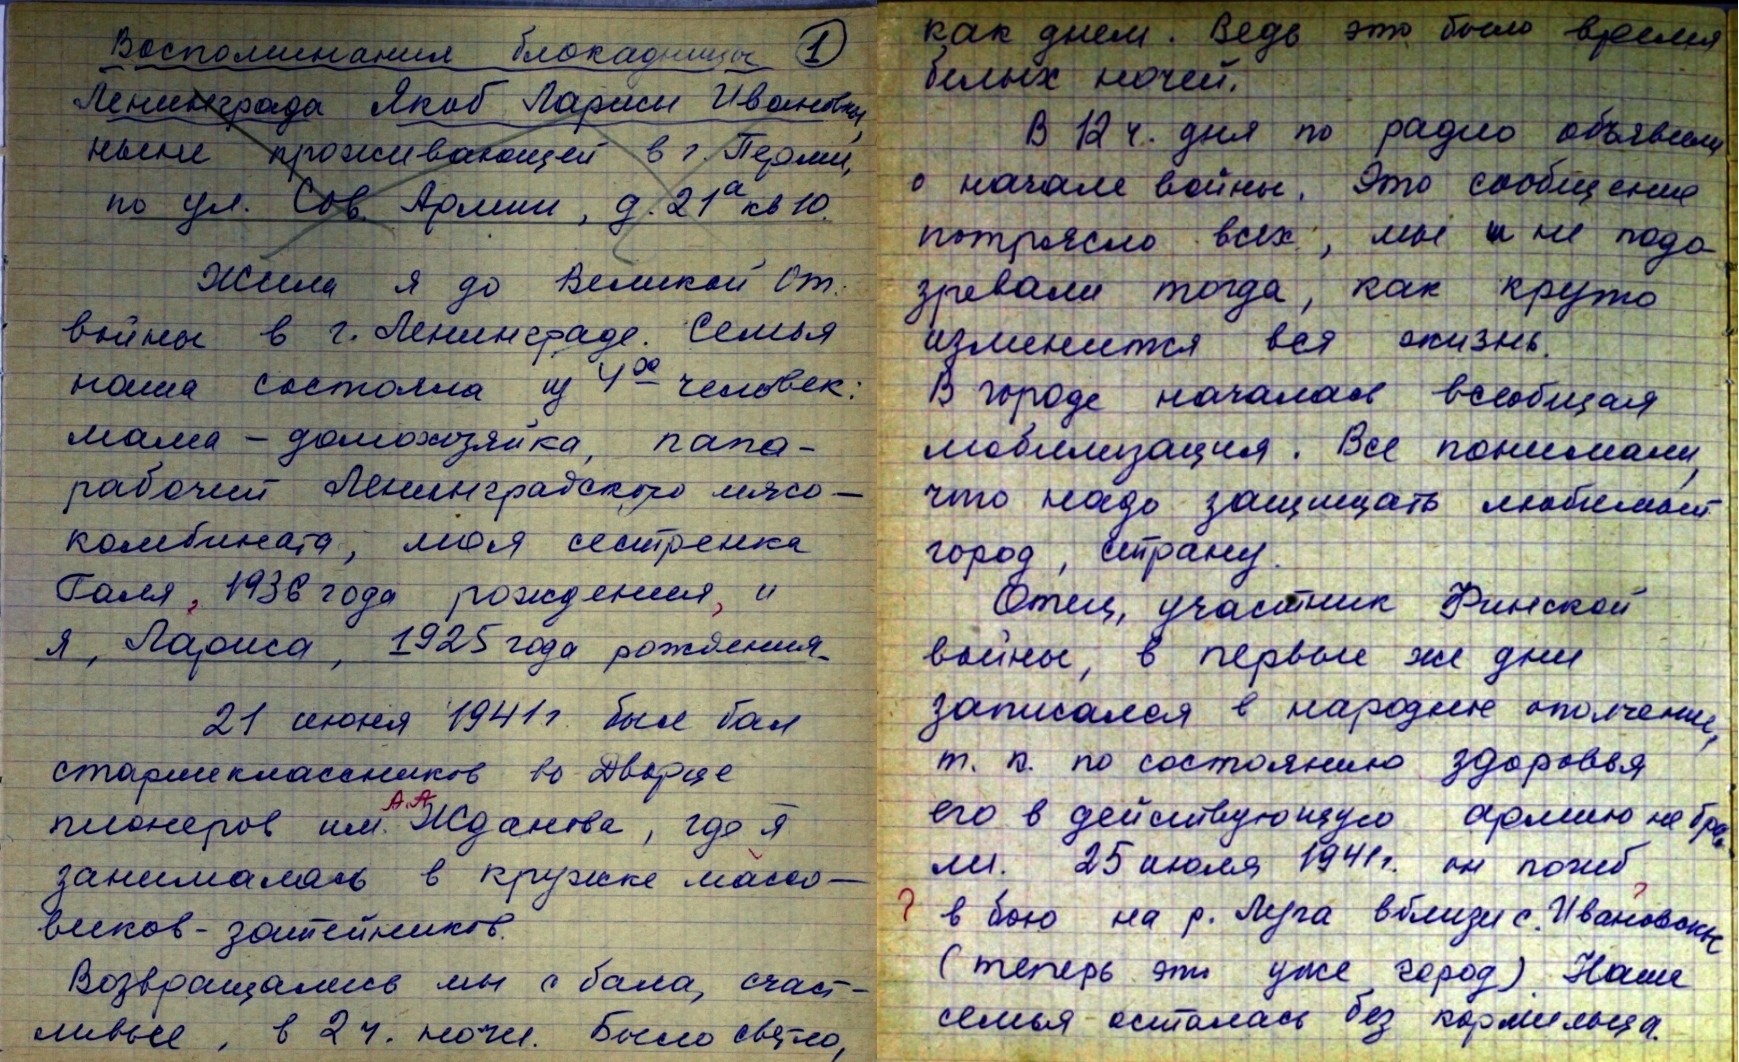 Воспоминания блокадницы 1
Ленинграда Якоб Ларисы Ивановны,
ныне проживающей в г. Перми,
по ул. Сов. Армии, д. 21а кв 10.
Жила я до Великой От.
войны в г. Ленинграде. Семья
наша состояла из 4ех человек:
мама – домохозяйка, папа –
рабочий Ленинградского мясо-
комбината, моя сестренка
Галя, 1936 года рождения, и
я, Лариса, 1925 года рождения.
21 июня 1941г. был бал
старшеклассников во Дворце
пионеров им. А.А. Жданова, где я
занималась в кружке массо-
виков-затейников.
Возвращались мы с бала, счаст-
ливые, в 2 ч. ночи. Было светло,
как днем. Ведь это было время
белых ночей.
В 12 ч. дня по радио объявили
о начале войны. Это сообщение
потрясло всех, мы и не подо-
зревали тогда, как круто
изменится вся жизнь.
В городе началась всеобщая
мобилизация. Все понимали,
что надо защищать любимый
город, страну.
Отец, участник Финской
войны, в первые же дни
записался в народное ополчение,
т. к. по состоянию здоровья
его в действующую армию не бра-
ли. 25 июля 1941г. он погиб
? в бою на р. Луга вблизи с. Ивановское ?
(теперь это уже город). Наша
семья осталась без кормильца.